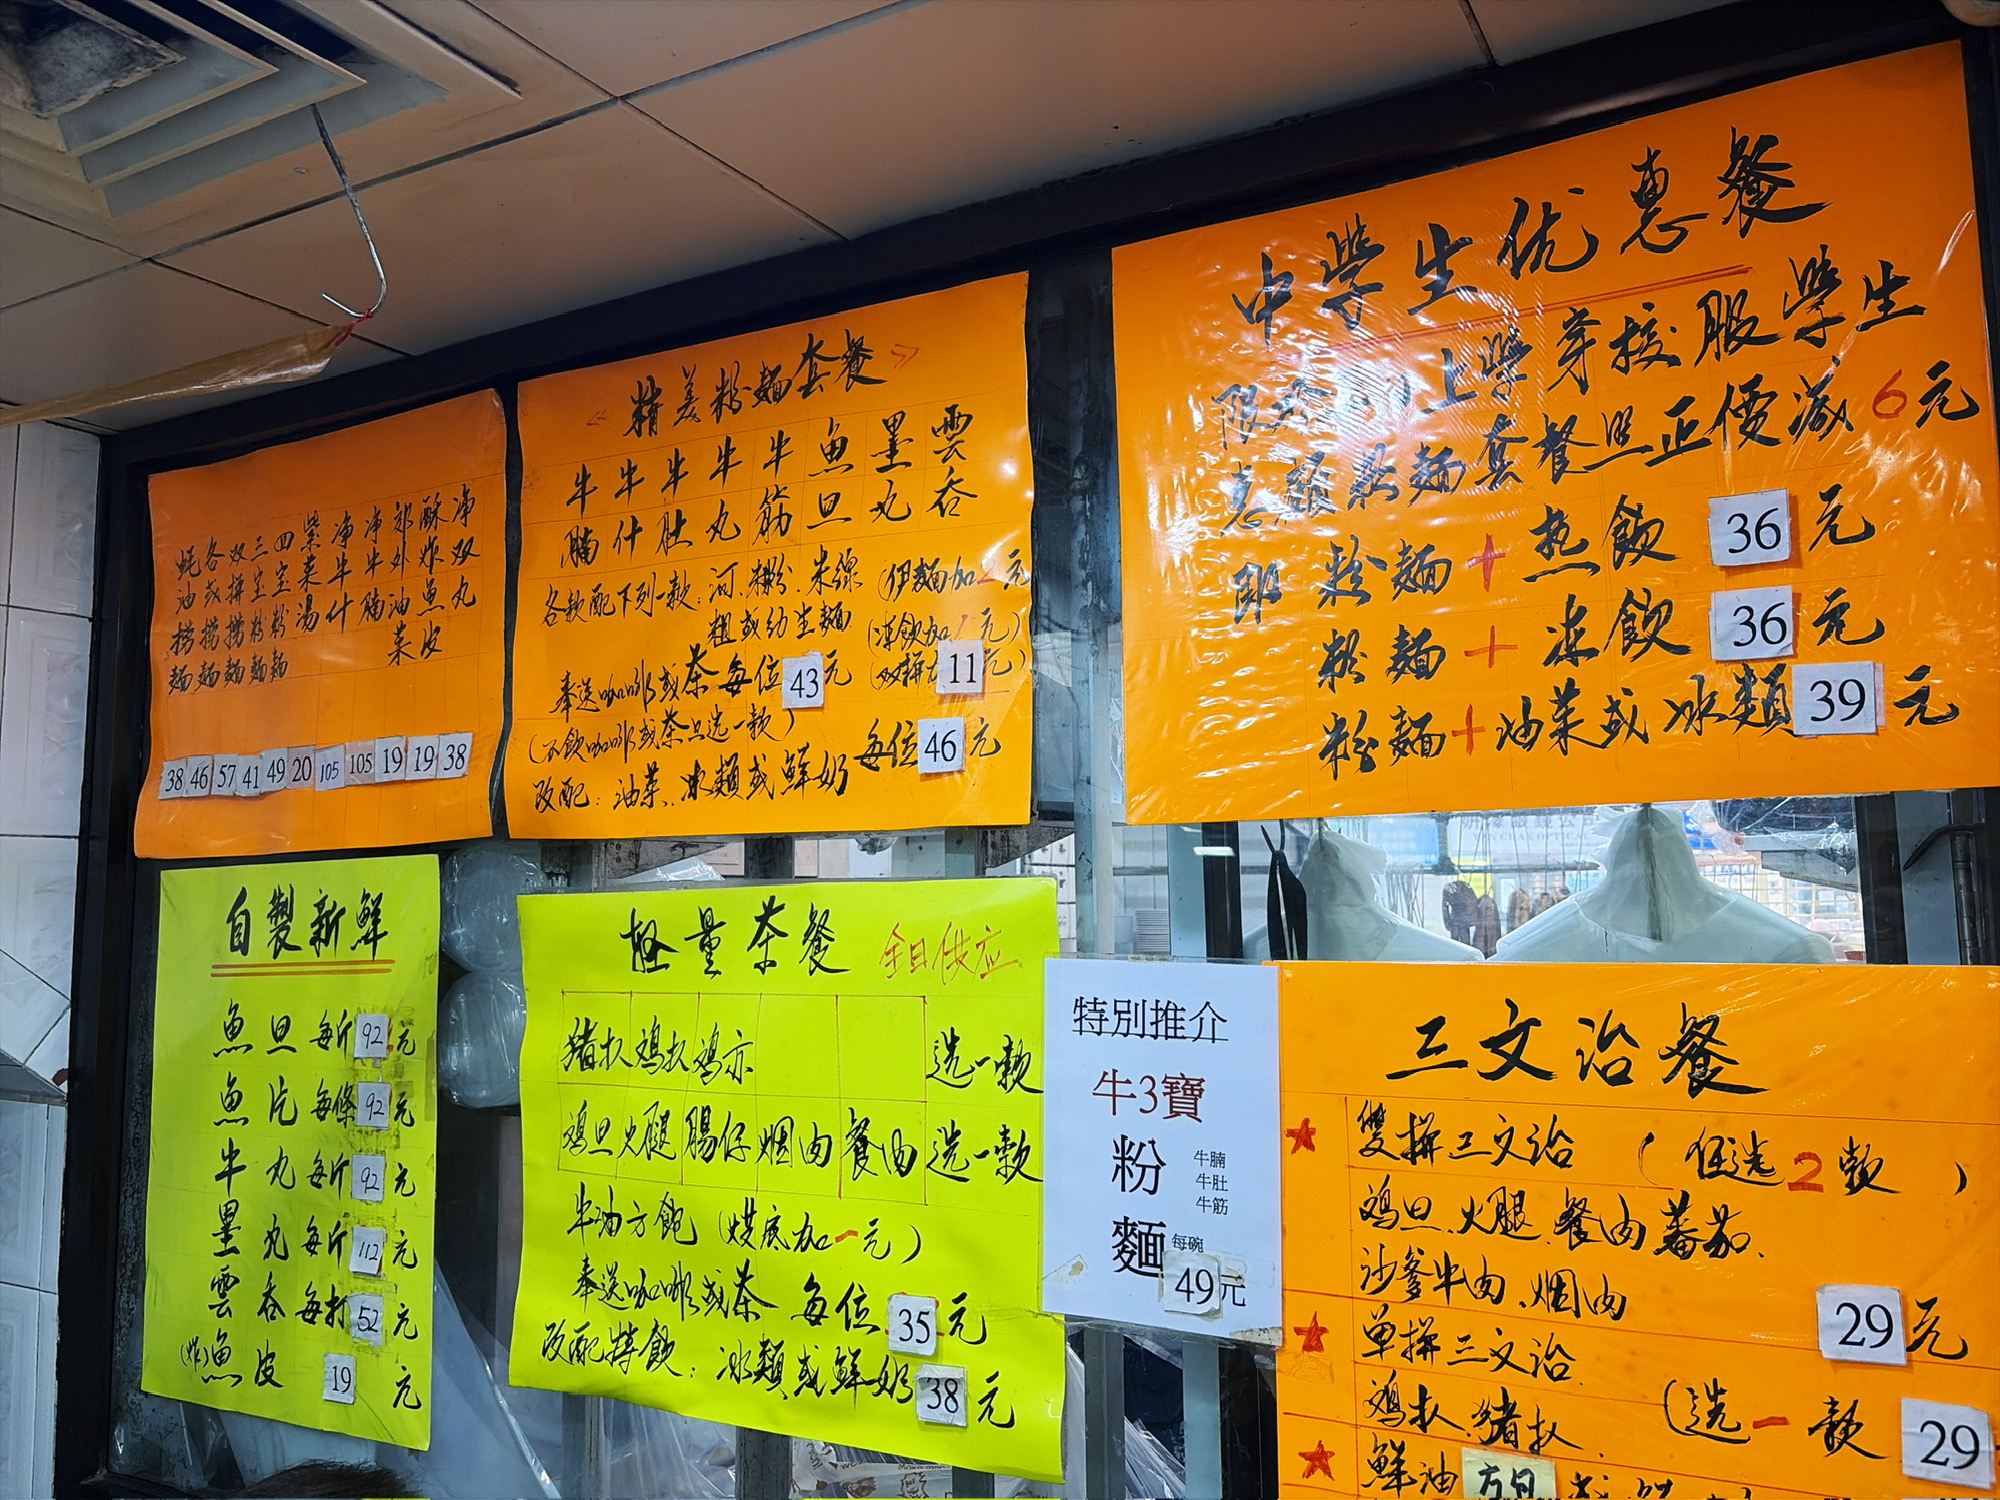 蚝油捞麵
各式捞麵
双拼捞麵
三宝粉麵
四宝粉麵
紫菜湯
净牛什
净牛腩
郊外油菜
酥炸魚皮
净双丸
38 46 57 41 49 20 105 105 19 19 38
《精美粉麵套餐》
牛腩 牛什 牛肚 牛丸 牛筋 魚旦 墨丸 雲吞
各款配下列一款:河.粉.米線 (伊麵加2元
粗或幼生麵 (凍飲加 元)
奉送咖啡或茶每位43元 (双拼加11元)
(不飲咖啡或茶只选一款)
改配:油菜.冰類或鮮奶 每位46元
中學生优惠餐
上學穿校服學生
惠顧粉麵套餐照正價減6元
即粉麵+热飲36元
粉麵+冻飲36元
粉麵+油菜或冰類39元
自製新鮮
魚旦每斤92元
魚片每條92元
牛丸每斤92元
墨丸每斤112元
雲吞每打52元
(炸)魚皮 19 元
軽量茶餐 全日供应
猪扒 鸡扒 鸡亦 选一款
鸡旦 火腿 腸仔 烟肉 餐肉 选一款
牛油方飽(烘底加一元)
奉送咖啡或茶 每位35元
改配特飲:冰類或鮮奶38元
特別推介
牛3寶
粉麵
牛腩
牛肚
牛筋
每碗
49元
三文治餐
★ 雙拼三文治 (任选2款)
鸡旦.火腿.餐肉.蕃茄.
沙爹牛肉.烟肉 29元
★ 单拼三文治.
鸡扒.猪扒. (选一款 29
★ 鮮油